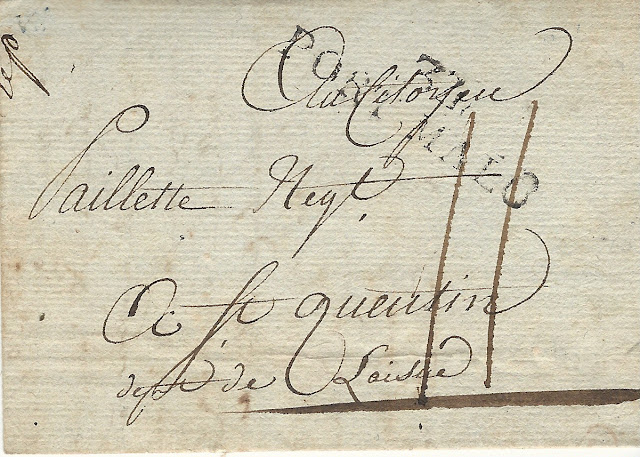 Au Citoyen
Paillette Negt
A St quentin
dept de Laisne
11
PORT MALO